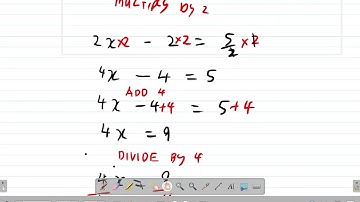 MULTIPLY by 2
2x×2 - 2×2 = 5/2 ×2
4x - 4 = 5
ADD 4
4x - 4+4 = 5+4
4x = 9
DIVIDE by 4
4x = 9